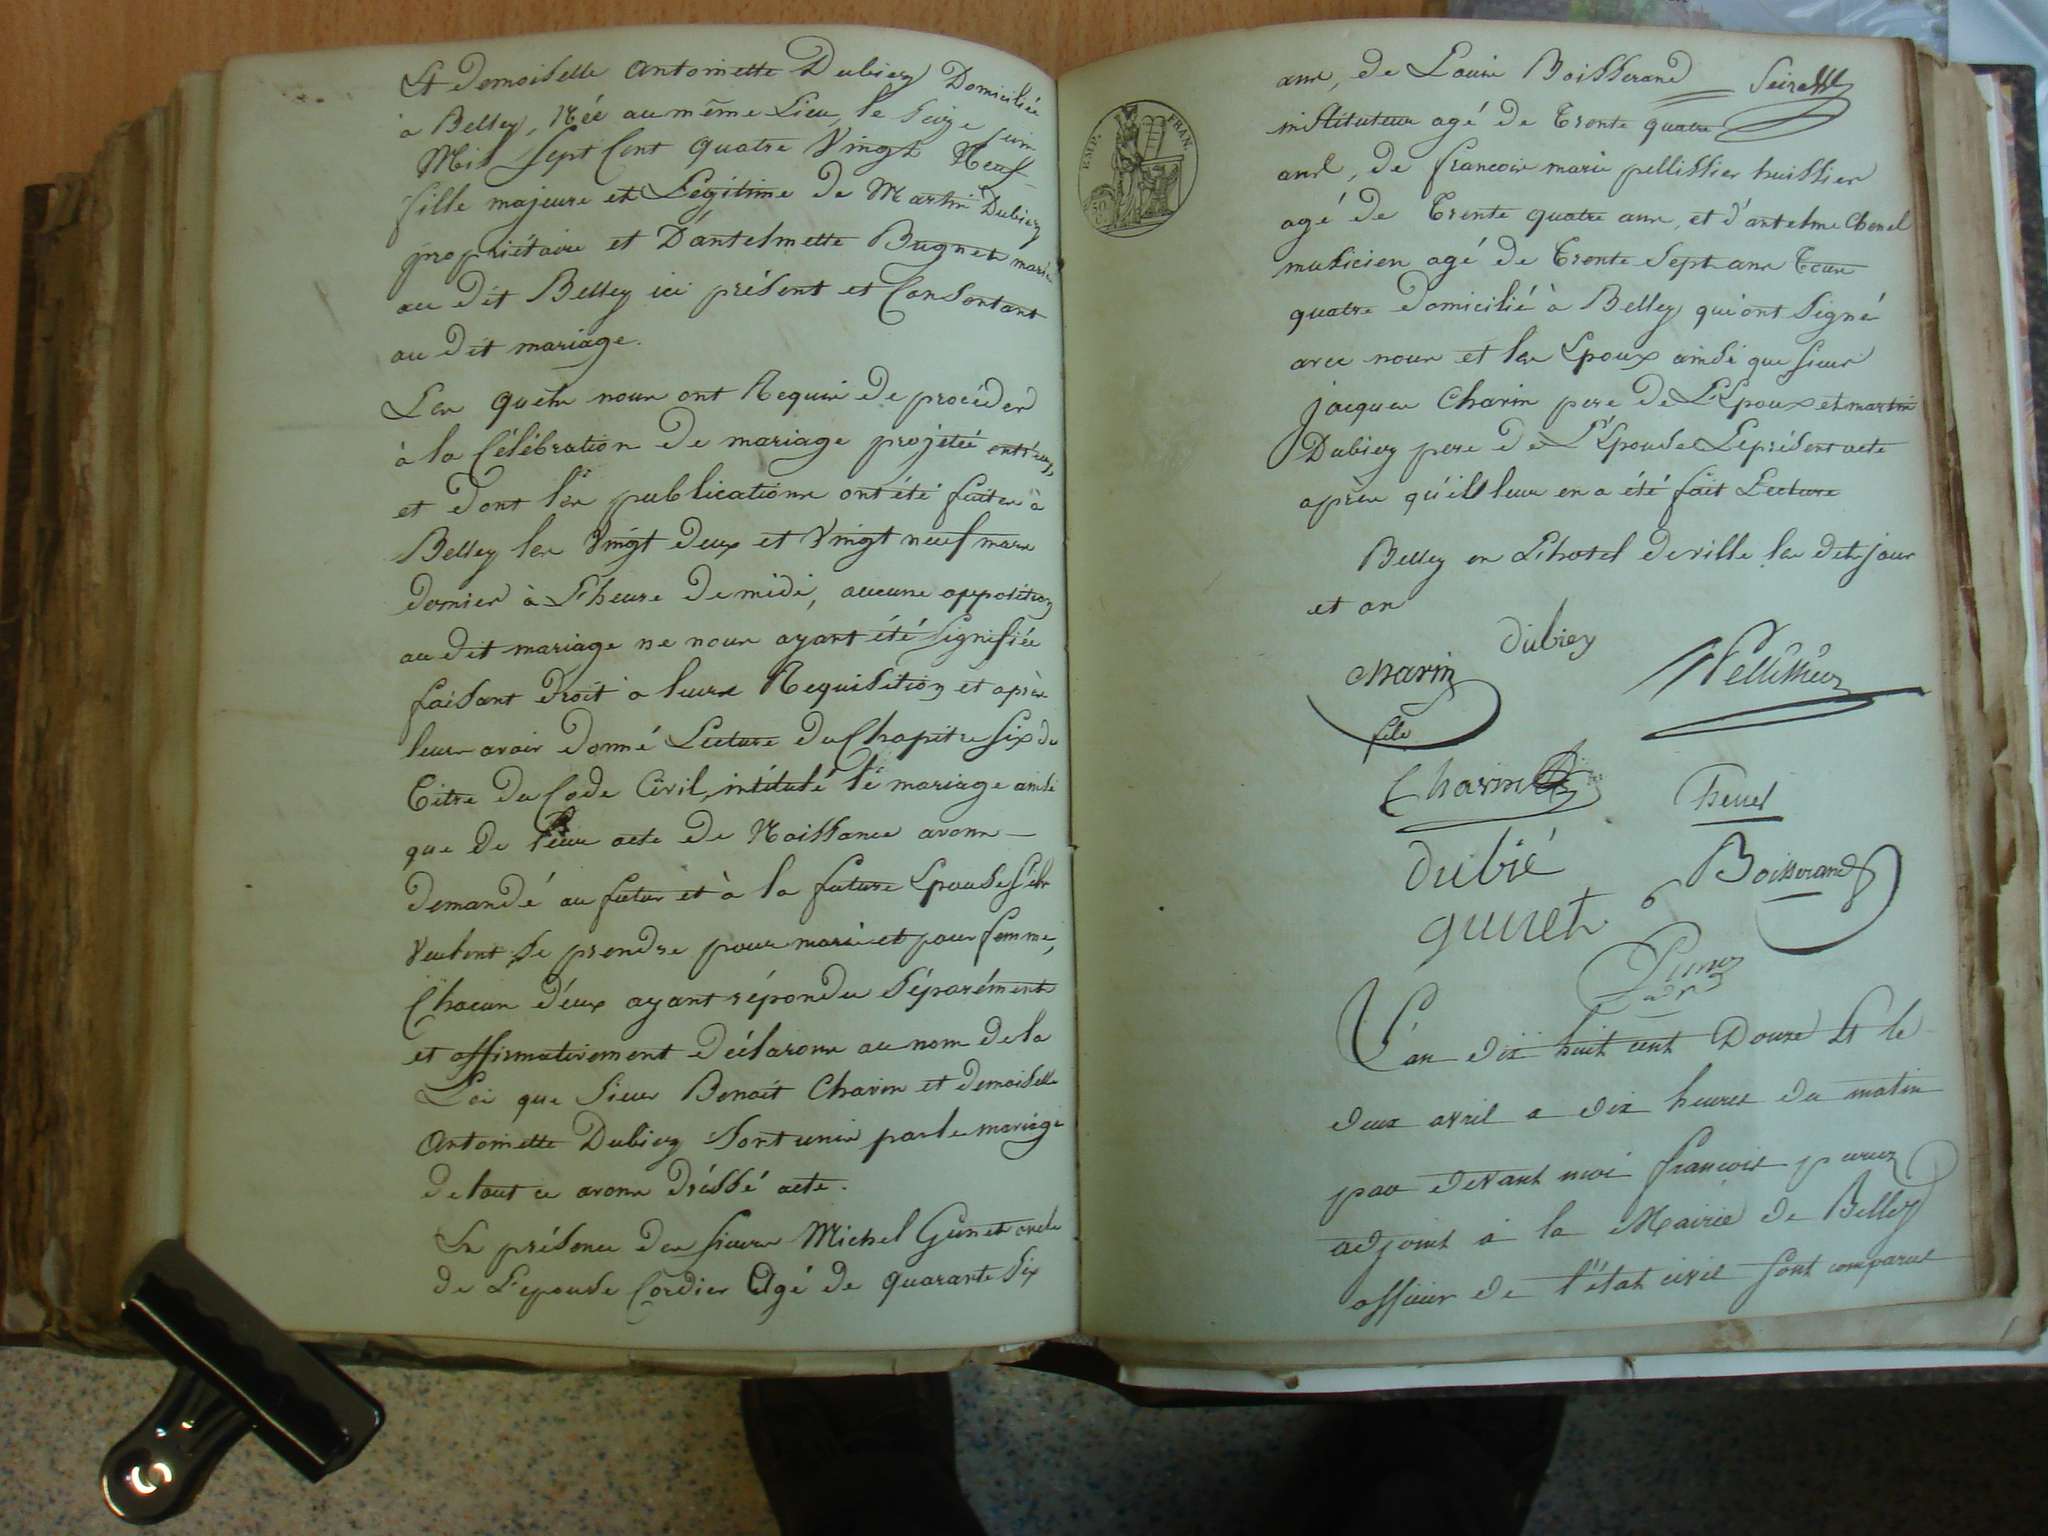 Et Demoiselle antoinette Dubiez Domiciliée
à Belley, Née au même Lieu, le Seize juin
Mil Sept Cent quatre Vingt Neuf
fille majeure et Legitime de Martin Dubiez
propriétaire et D'antelmette Bugnet mariés
au dit Belley ici présent et Consentant
au dit mariage.
Les quels nous ont Requis De procéder
à la Célébration De mariage projetée entr'eux,
et Dont les publications ont été faites à
Belley les Vingt Deux et Vingt neuf mars
dernier à L'heure De midi, aucune opposition
au dit mariage ne nous ayant été Signifiée
faisant Droit à leurs Requisition et après
leurs avoir Donné Lecture Du Chapitre Six du
Titre Du Code Civil, intitulé le mariage ainsi
que De leur acte De Naissance avons
demandé au futur et à la future Epouse s'ils
Veulent Se prendre pour mari et pour femme,
Chacun d'eux ayant répondu Séparément
et affirmativement Déclarons au nom De la
Loi que Sieur Benoit Charin et demoiselle
Antoinette Dubiez Sont unis par le mariage
De tout ce avons Dréssé acte.
En présence des Sieurs Michel Gunet oncle
de L'epouse Cordier Agé de quarante Six
EMP. FRAN.
ans, de Louis Boisserand
instituteur agé De Trente quatre
ans, de francois marie pellissier huissier
agé De Trente quatre ans, et d'antelme Chenel
musicien agé De Trente Sept ans Tous
quatre Domicilié à Belley qui ont Signé
avec nous et les Epoux ainsi que Sieur
jacques Charin pere De L'Epoux et martin
Dubiez pere De L'Epouse Le présent acte
après qu'il leur en a été fait Lecture
Belley en L'hotel De ville les dit jour
et an
dubiez
charin
Pellissier
fils
Charin
Chenel
dubié
Boisserand
gunet
L'an dix huit cent Douze Et le
deux avril a dix heures du matin
par devant moi francois
adjoint à la Mairie de Belley
officier de l'état civil sont comparus